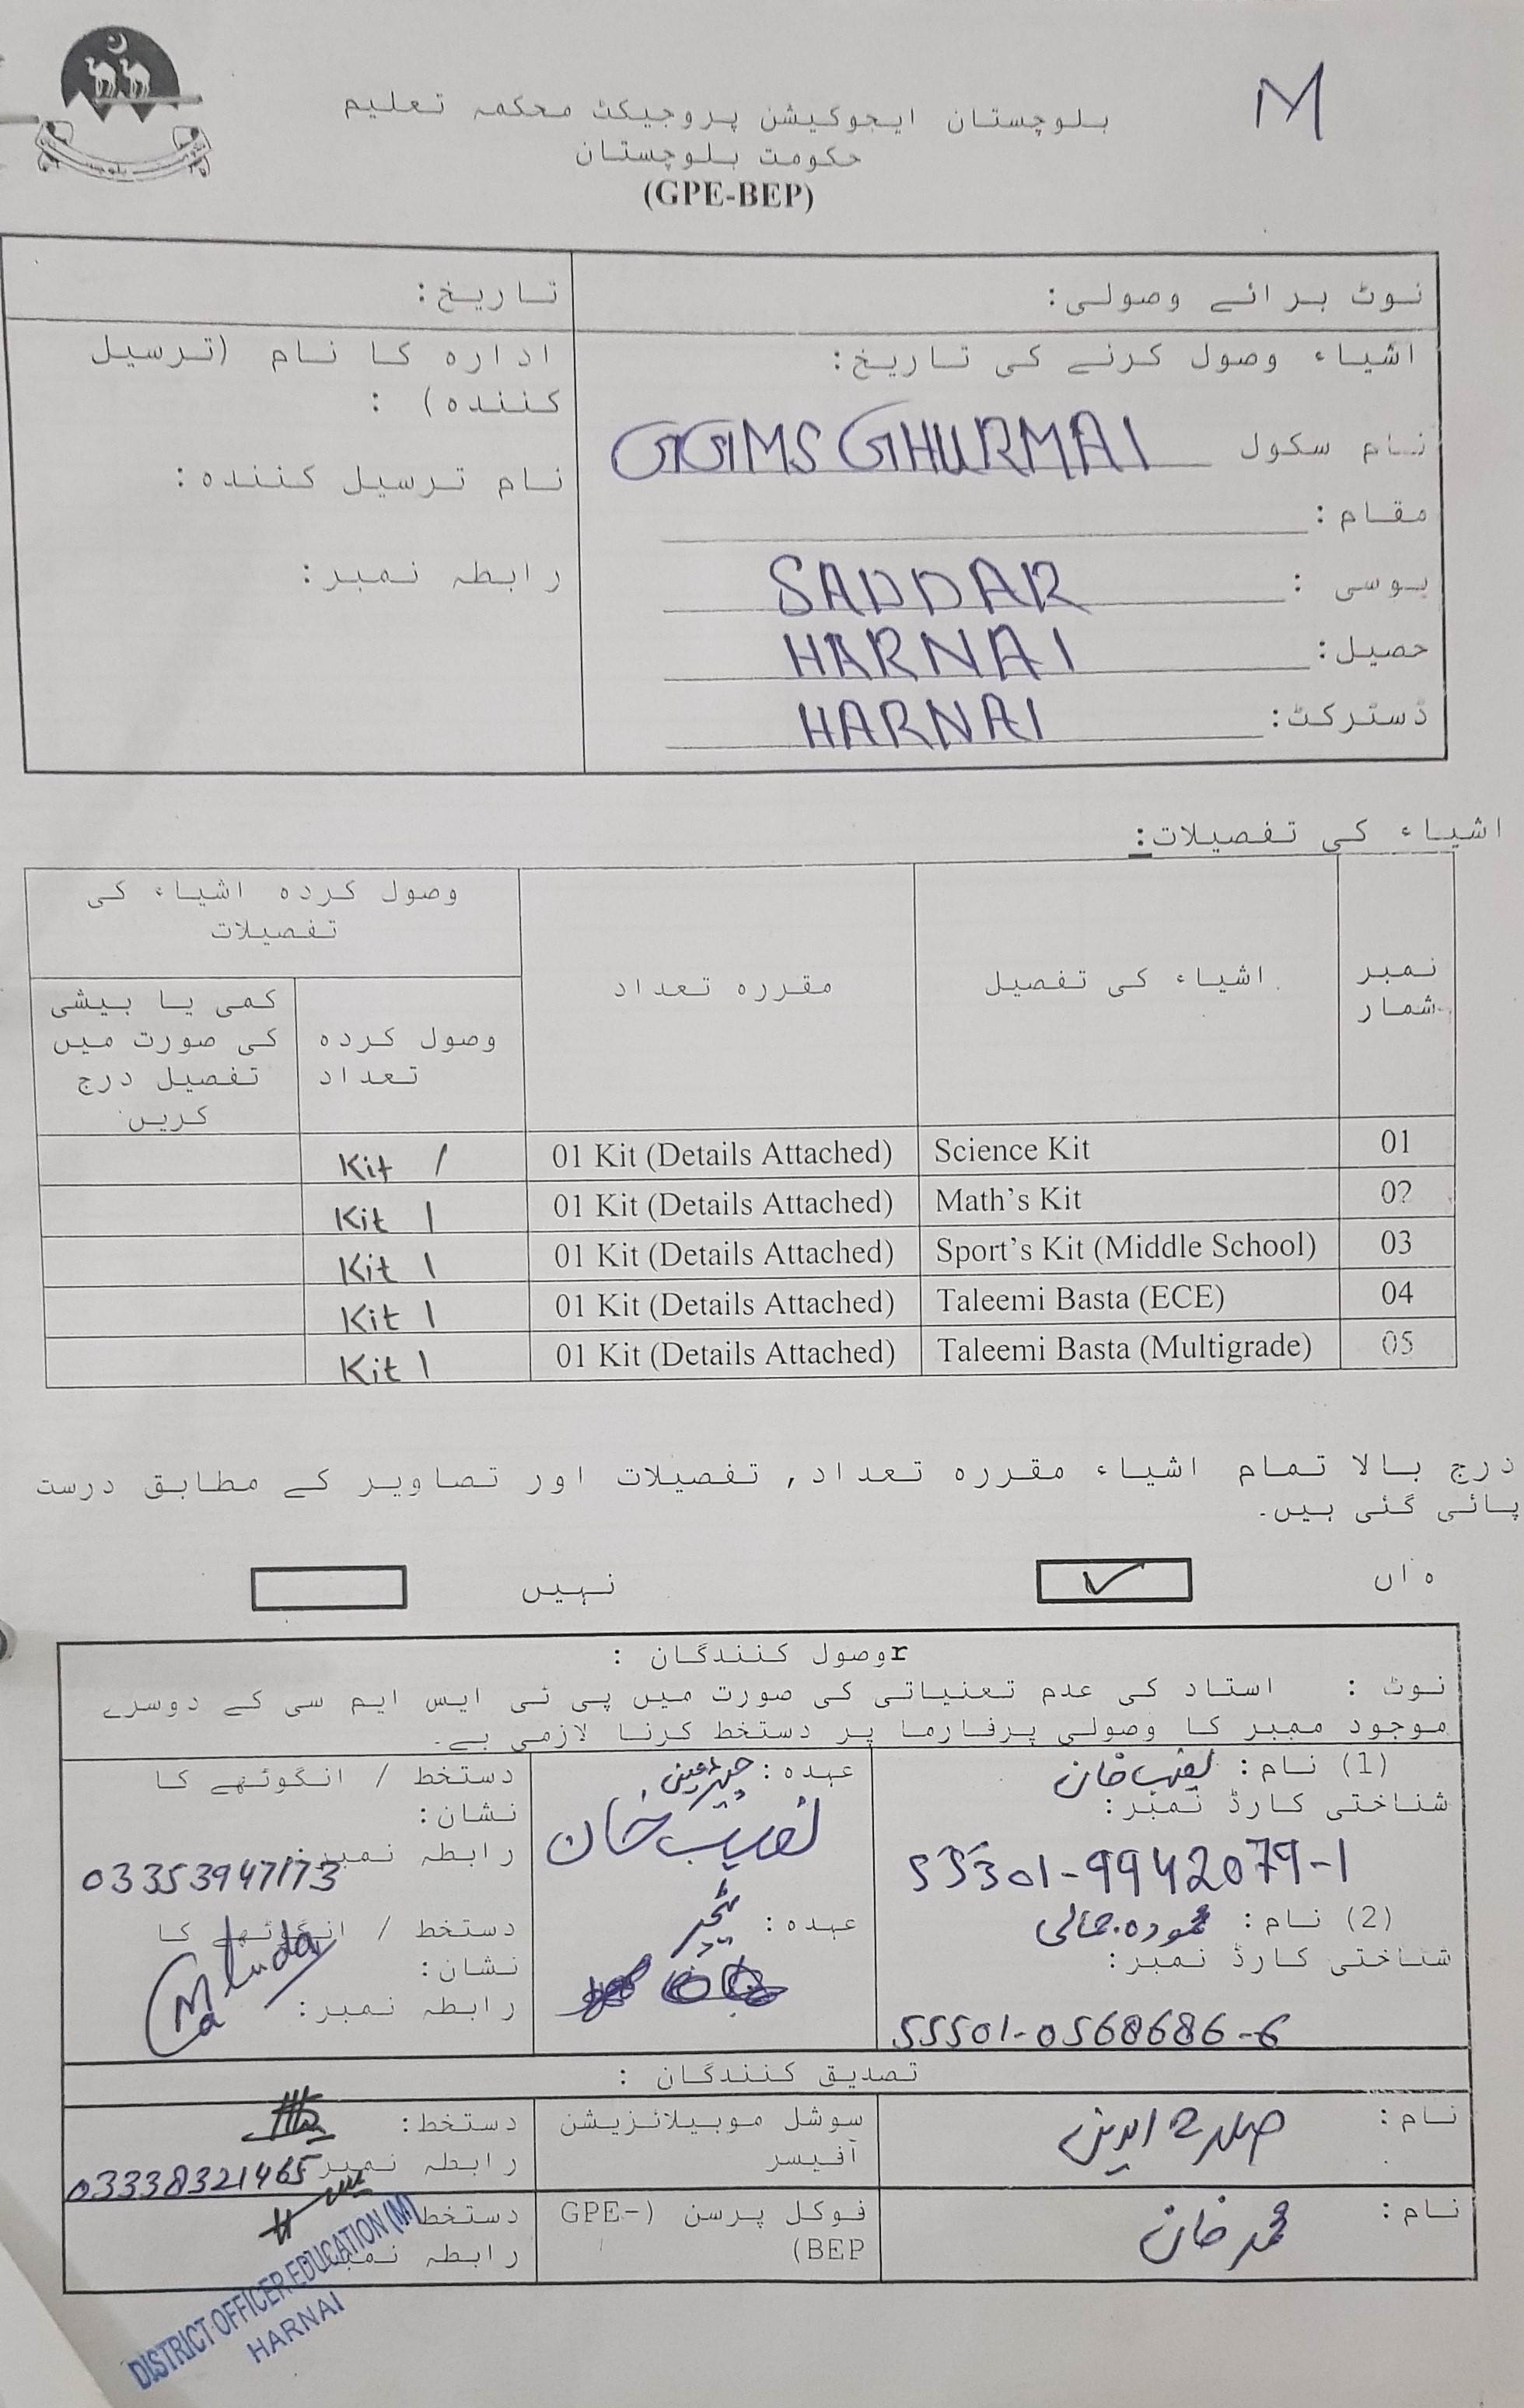 M
بلوچستان ایجوکیشن پروجیکٹ محکمہ تعلیم
حکومت بلوچستان
(GPE-BEP)
نوٹ برائے وصولی:
تاریخ:
اشیاء وصول کرنے کی تاریخ:
نام سکول GGMS GHURMAI
مقام:
یوسی : SADDAR
حصیل: HARNAI
ڈسٹرکٹ: HARNAI
ادارہ کا نام (ترسیل
کنندہ) :
نام ترسیل کنندہ:
رابطہ نمبر:
اشیاء کی تفصیلات:
نمبر شمار
اشیاء کی تفصیل
مقررہ تعداد
وصول کردہ اشیاء کی
تفصیلات
وصول کردہ
تعداد
کمی یا بیشی
کی صورت میں
تفصیل درج
کریں
01 Science Kit 01 Kit (Details Attached) Kit 1
02 Math's Kit 01 Kit (Details Attached) Kit 1
03 Sport's Kit (Middle School) 01 Kit (Details Attached) Kit 1
04 Taleemi Basta (ECE) 01 Kit (Details Attached) Kit 1
05 Taleemi Basta (Multigrade) 01 Kit (Details Attached) Kit 1
درج بالا تمام اشیاء مقررہ تعداد, تفصیلات اور تصاویر کے مطابق درست
پائی گئی ہیں۔
ہاں ✓ نہیں
rوصول کنندگان :
نوٹ : استاد کی عدم تعنیاتی کی صورت میں پی ٹی ایس ایم سی کے دوسرے
موجود ممبر کا وصولی پرفارما پر دستخط کرنا لازمی ہے۔
(1) نام: نصیب خان
شناختی کارڈ نمبر:
55301-9942079-1
عہدہ: چیئرمین
نصیب خان
دستخط / انگوٹھے کا
نشان:
رابطہ نمبر: 03353947173
(2) نام: حمودہ جمالی
شناختی کارڈ نمبر:
55501-0568686-6
عہدہ: ٹیچر
دستخط / انگوٹھے کا
نشان:
رابطہ نمبر:
تصدیق کنندگان :
نام:
سوشل موبیلائزیشن
آفیسر
دستخط:
رابطہ نمبر 03338321465
نام: محمد خان
فوکل پرسن (GPE-
BEP)
دستخط
رابطہ نمبر
DISTRICT OFFICER EDUCATION (M)
HARNAI